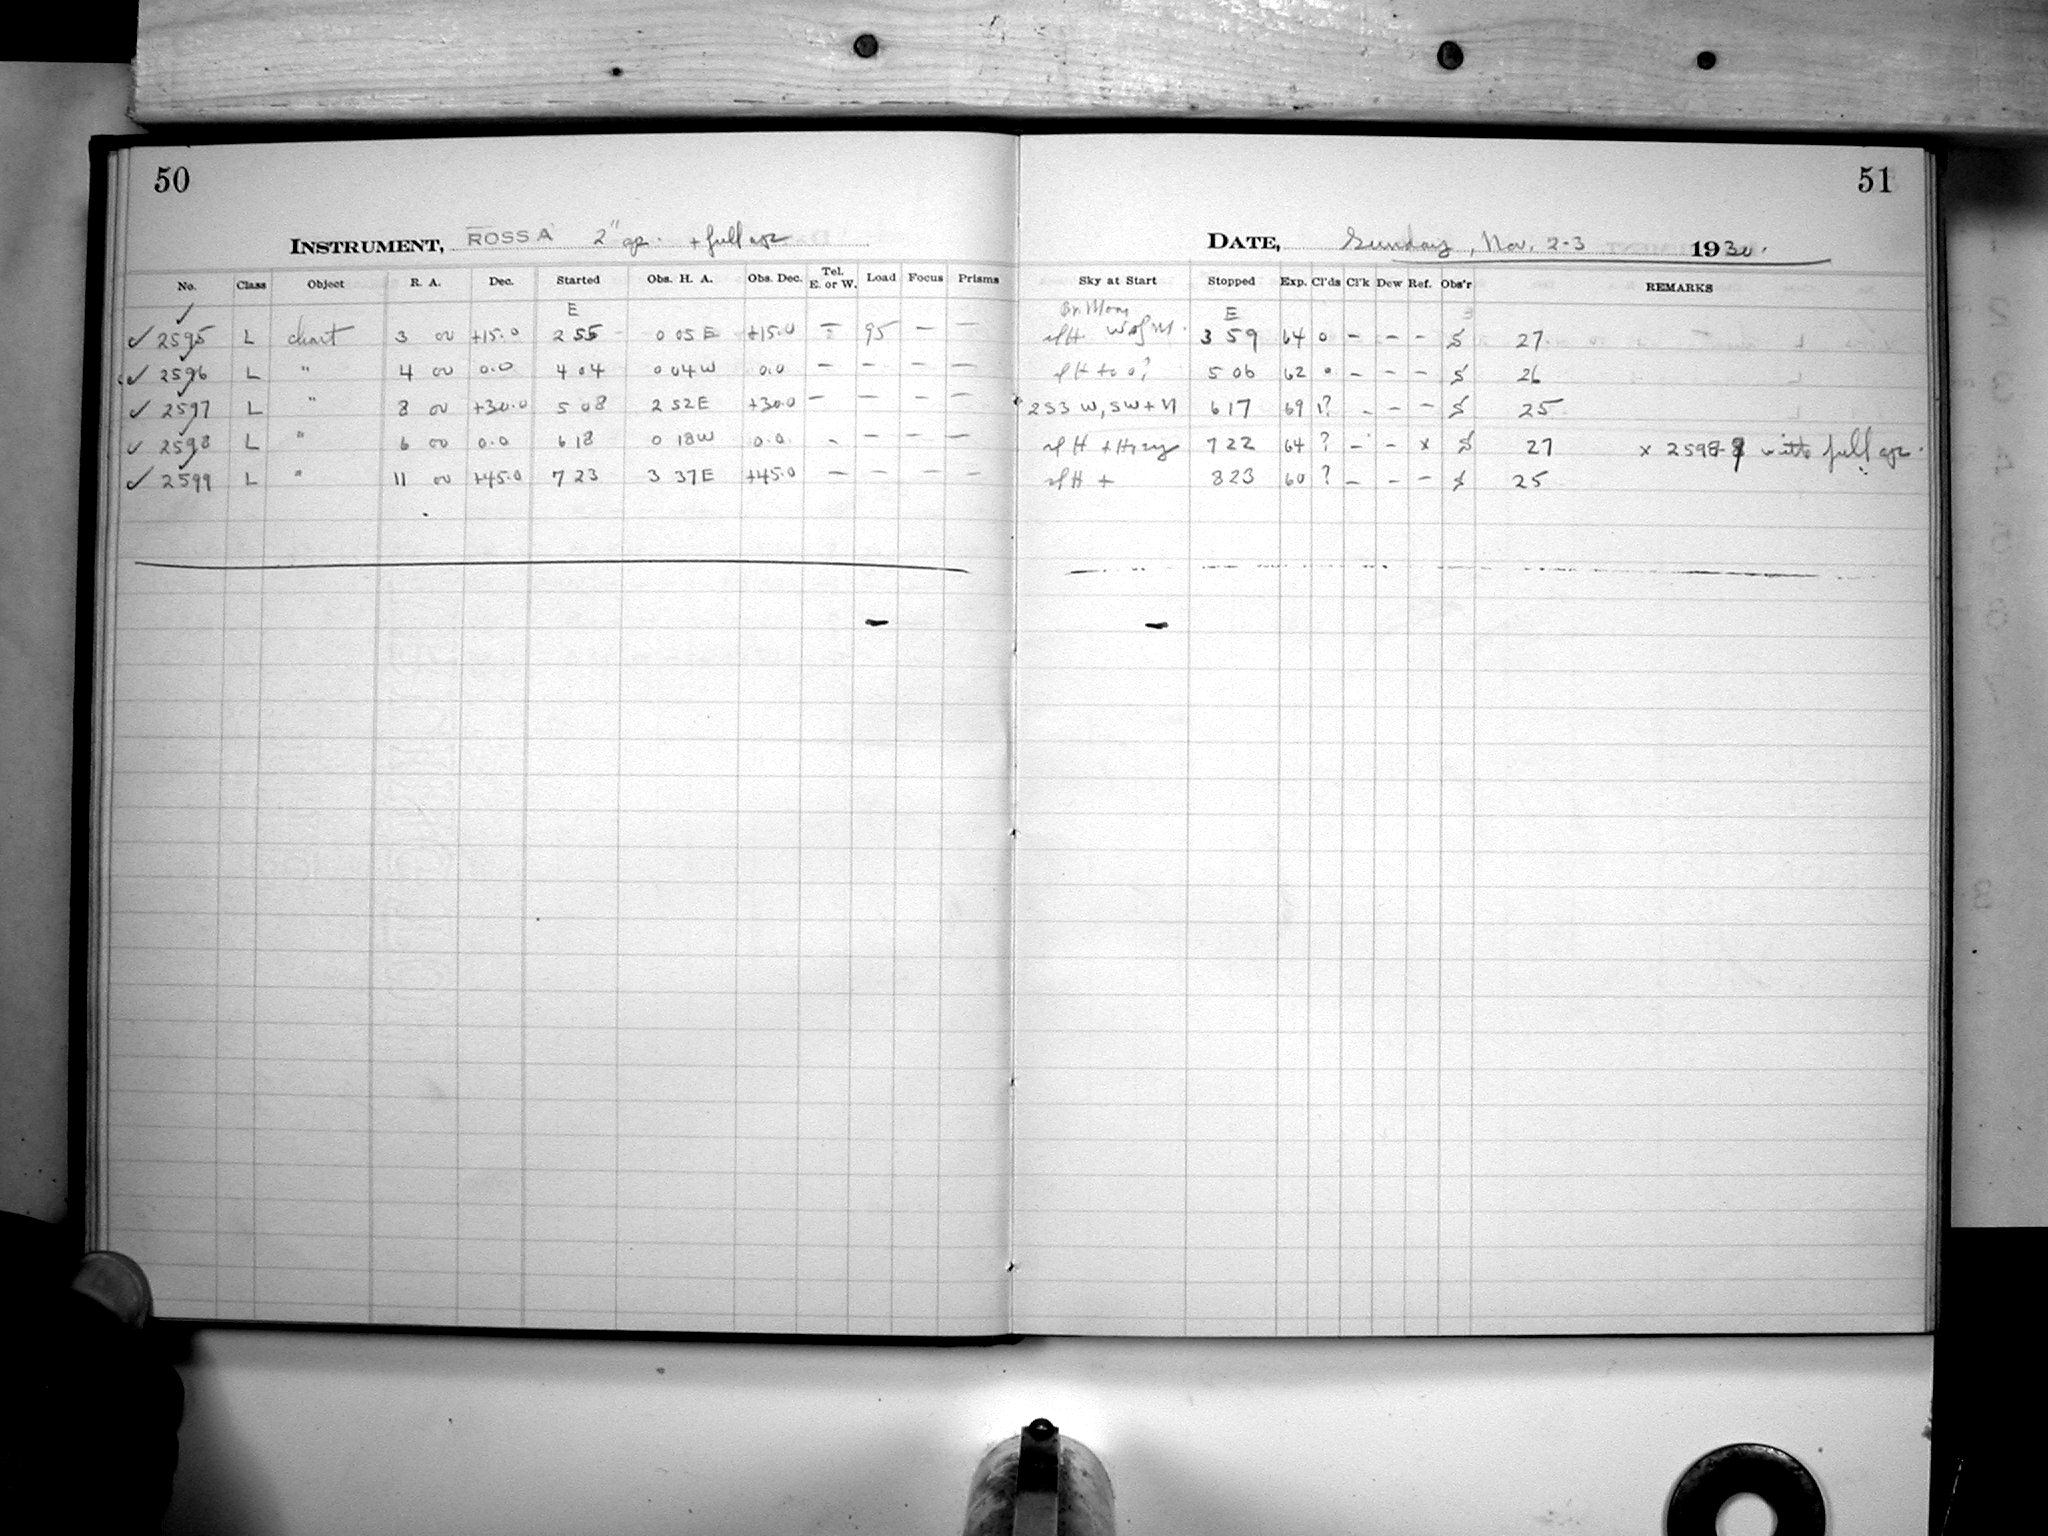 50
INSTRUMENT, ROSS A 2" ap. + full ap
No. Class Object R. A. Dec. Started Obs. H. A. Obs. Dec. Tel. E. or W. Load Focus Prisms
E
✓ 2595 L chart 3 00 +15.0 2 55 0 05 E +15.0 – 95 – –
✓ 2596 L " 4 00 0.0 4 04 0 04 W 0.0 – – – –
✓ 2597 L " 8 00 +30.0 5 08 2 52 E +30.0 – – – –
✓ 2598 L " 6 00 0.0 6 18 0 18 W 0.0 – – – –
✓ 2599 L " 11 00 +45.0 7 23 3 37 E +45.0 – – – –
51
DATE, Sunday, Nov. 2-3 1930.
Sky at Start Stopped Exp. Cl'ds Cl'k Dew Ref. Obs'r REMARKS
Br Moon E
slH W of M. 3 59 64 0 – – – S 27
slH to 0? 5 06 62 0 – – – S 26
253 W, SW + N 6 17 69 1? – – – S 25
slH + Hazy 7 22 64 ? – – x S 27 x 2598-9 with full ap.
slH + 8 23 60 ? – – – S 25